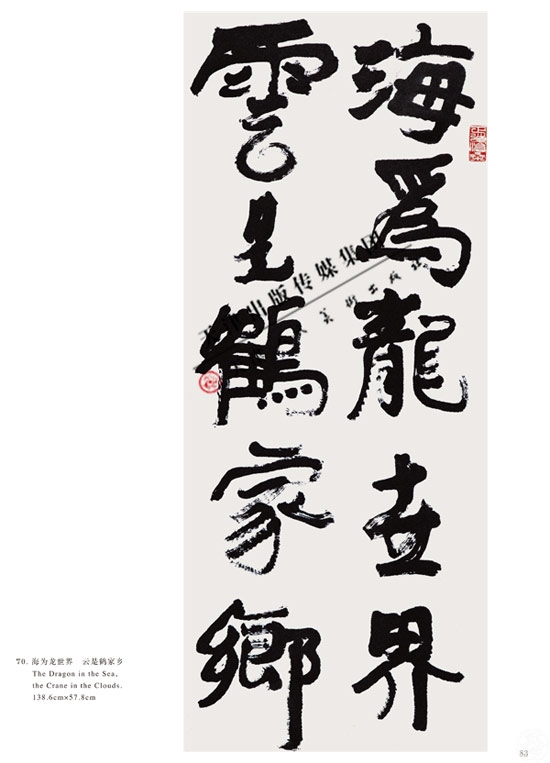 海爲龍世界
雲是鶴家鄉
出版传媒集团
美術出版社
70. 海为龙世界 云是鹤家乡
The Dragon in the Sea,
the Crane in the Clouds.
138.6cm×57.8cm
83